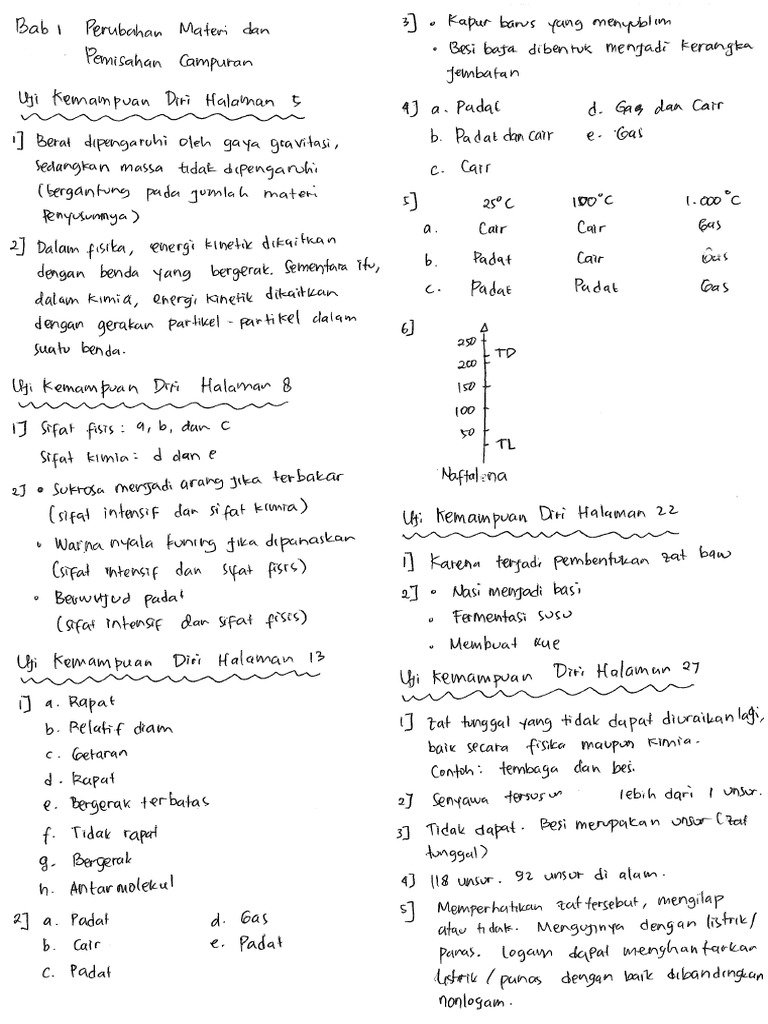 Bab 1 Perubahan Materi dan
Pemisahan Campuran
Uji Kemampuan Diri Halaman 5
1] Berat dipengaruhi oleh gaya gravitasi,
sedangkan massa tidak dipengaruhi
(bergantung pada jumlah materi
Penyusunnya)
2] Dalam fisika, energi kinetik dikaitkan
dengan benda yang bergerak. Sementara itu,
dalam kimia, energi kinetik dikaitkan
dengan gerakan partikel-partikel dalam
suatu benda.
Uji Kemampuan Diri Halaman 8
1] Sifat fisis : a, b, dan c
Sifat kimia : d dan e
2] • Sukrosa menjadi arang jika terbakar
(sifat intensif dan sifat kimia)
• Warna nyala kuning jika dipanaskan
(sifat intensif dan sifat fisis)
• Berwujud padat
(sifat intensif dan sifat fisis)
Uji Kemampuan Diri Halaman 13
1] a. Rapat
b. Relatif diam
c. Getaran
d. Rapat
e. Bergerak terbatas
f. Tidak rapat
g. Bergerak
h. Antarmolekul
2] a. Padat d. Gas
b. Cair e. Padat
c. Padat
3] • Kapur barus yang menyublim
• Besi baja dibentuk menjadi kerangka
jembatan
4] a. Padat d. Gas dan Cair
b. Padat dan cair e. Gas
c. Cair
5] 25°C 100°C 1.000°C
a. Cair Cair Gas
b. Padat Cair Gas
c. Padat Padat Gas
6]
250
TD
200
150
100
50
TL
Naftalena
Uji Kemampuan Diri Halaman 22
1] Karena terjadi pembentukan zat baru
2] • Nasi menjadi basi
• Fermentasi susu
• Membuat kue
Uji Kemampuan Diri Halaman 27
1] Zat tunggal yang tidak dapat diuraikan lagi,
baik secara fisika maupun kimia.
Contoh : tembaga dan besi.
2] Senyawa tersusun lebih dari 1 unsur.
3] Tidak dapat. Besi merupakan unsur (zat
tunggal)
4] 118 unsur. 92 unsur di alam.
5] Memperhatikan zat tersebut, mengilap
atau tidak. Mengujinya dengan listrik/
panas. Logam dapat menghantarkan
listrik / panas dengan baik dibandingkan
nonlogam.